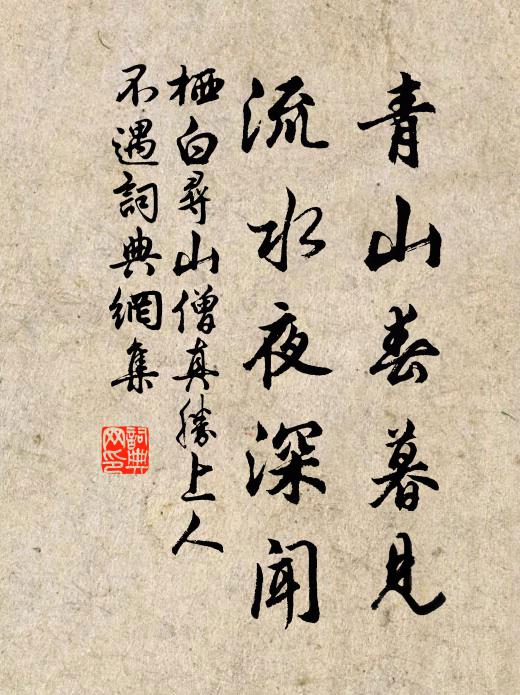 青山春暮見
流水夜深聞
栖白尋山僧真勝上人
不遇詞典網集
詞典網印